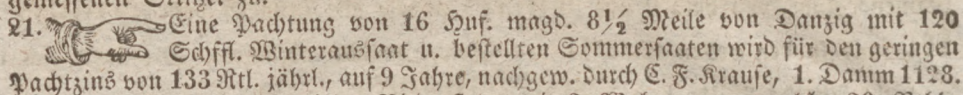 21. Eine Pachtung von 16 Huf. magd. 8½ Meile von Danzig mit 120
Schffl. Winteraussaat u. bestellten Sommersaaten wird für den geringen
Pachtzins von 133 Rtl. jährl., auf 9 Jahre, nachgew. durch C. F. Krause, 1. Damm 1128.